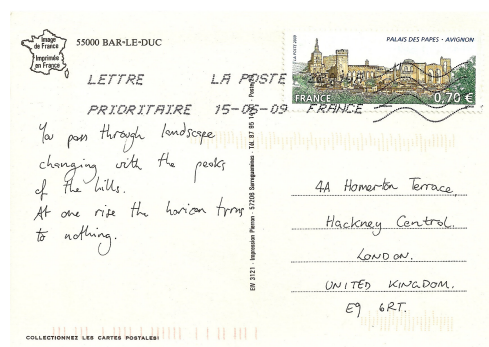 Image
de France
Imprimée
en France
55000 BAR-LE-DUC
PALAIS DES PAPES - AVIGNON
LA POSTE 2009
FRANCE
0,70 €
LETTRE LA POSTE
PRIORITAIRE 15-05-09 FRANCE
You pass through landscape
changing with the peaks
of the hills.
At one rise the horizon turns
to nothing.
EW 3121 - Impression Pierron - 57206 Sarreguemines - Tél. 87 95
4A Homerton Terrace,
Hackney Central.
LONDON.
UNITED KINGDOM.
E9 6RT.
COLLECTIONNEZ LES CARTES POSTALES!